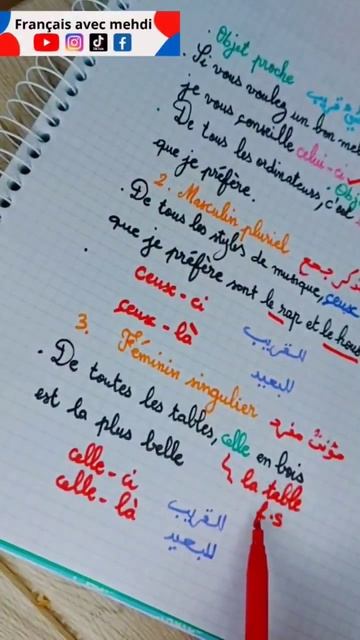 Français avec mehdi
Objet proche
Si vous voulez un bon
je vous conseille celui-ci
De tous les ordinateurs, c'est
que je préfère.
2. Masculin pluriel جمع
De tous les styles de musique, ceux
que je préfère sont le rap et le
ceux-ci للقريب
ceux-là للبعيد
3. Féminin singulier مؤنث مفرد
De toutes les tables, celle en bois
est la plus belle
la table
f.s
celle-ci للقريب
celle-là للبعيد